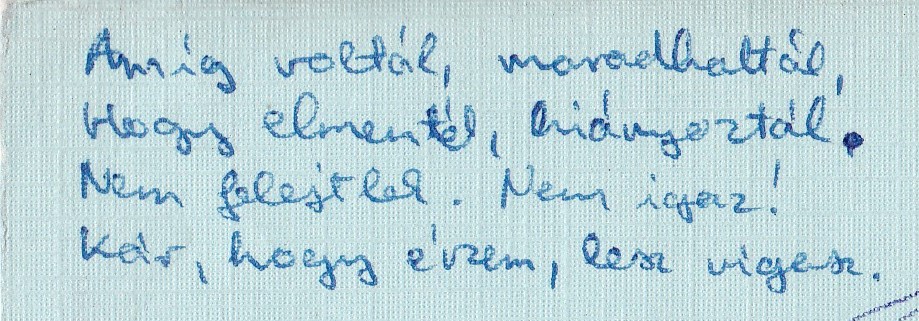 Amíg voltál, maradhattál,
Hogy elmentél, hiányoztál.
Nem felejtlek. Nem igaz!
Kár, hogy érzem, lesz vigasz.